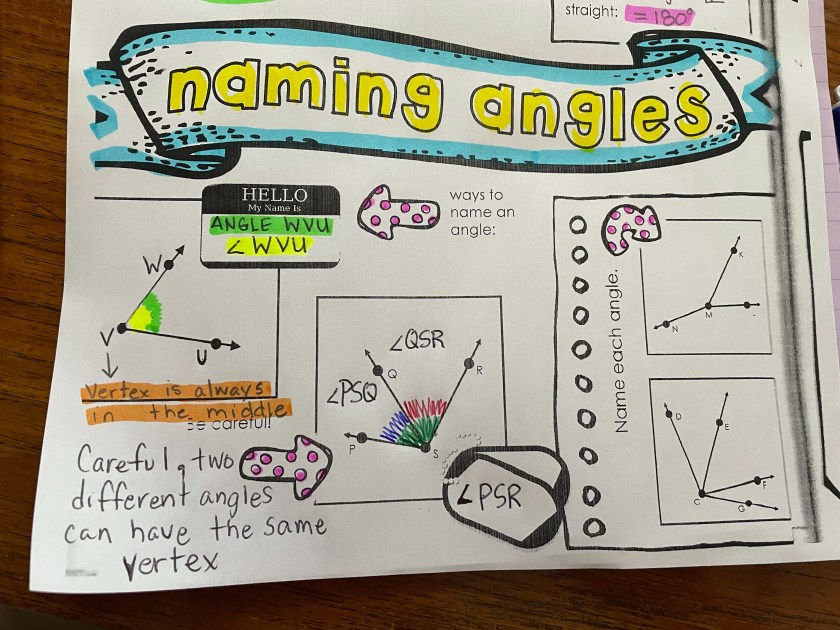 straight: = 180°
naming angles
HELLO
My Name Is
ANGLE WVU
∠WVU
ways to
name an
angle:
W
V
U
Vertex is always
in the middle
be careful!
Careful, two
different angles
can have the same
vertex
∠QSR
∠PSQ
Q
R
P
S
∠PSR
Name each angle.
K
M
N
D
E
C
F
G